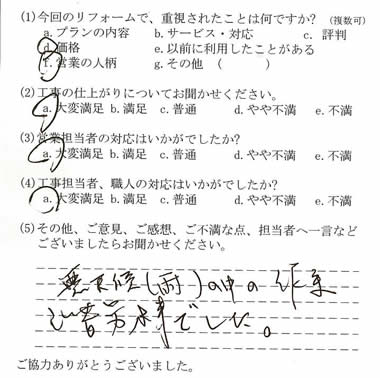 (1)今回のリフォームで、重視されたことは何ですか? (複数可)
a.プランの内容 b.サービス・対応 c. 評判
d.価格 e.以前に利用したことがある
f.営業の人柄 g.その他 ( )
(2)工事の仕上がりについてお聞かせください。
a.大変満足 b.満足 c.普通 d.やや不満 e.不満
(3)営業担当者の対応はいかがでしたか?
a.大変満足 b.満足 c.普通 d.やや不満 e.不満
(4)工事担当者、職人の対応はいかがでしたか?
a.大変満足 b.満足 c.普通 d.やや不満 e.不満
(5)その他、ご意見、ご感想、ご不満な点、担当者へ一言など
ございましたらお聞かせください。
悪天候(雨)の中の作業
ご苦労様でした。
ご協力ありがとうございました。